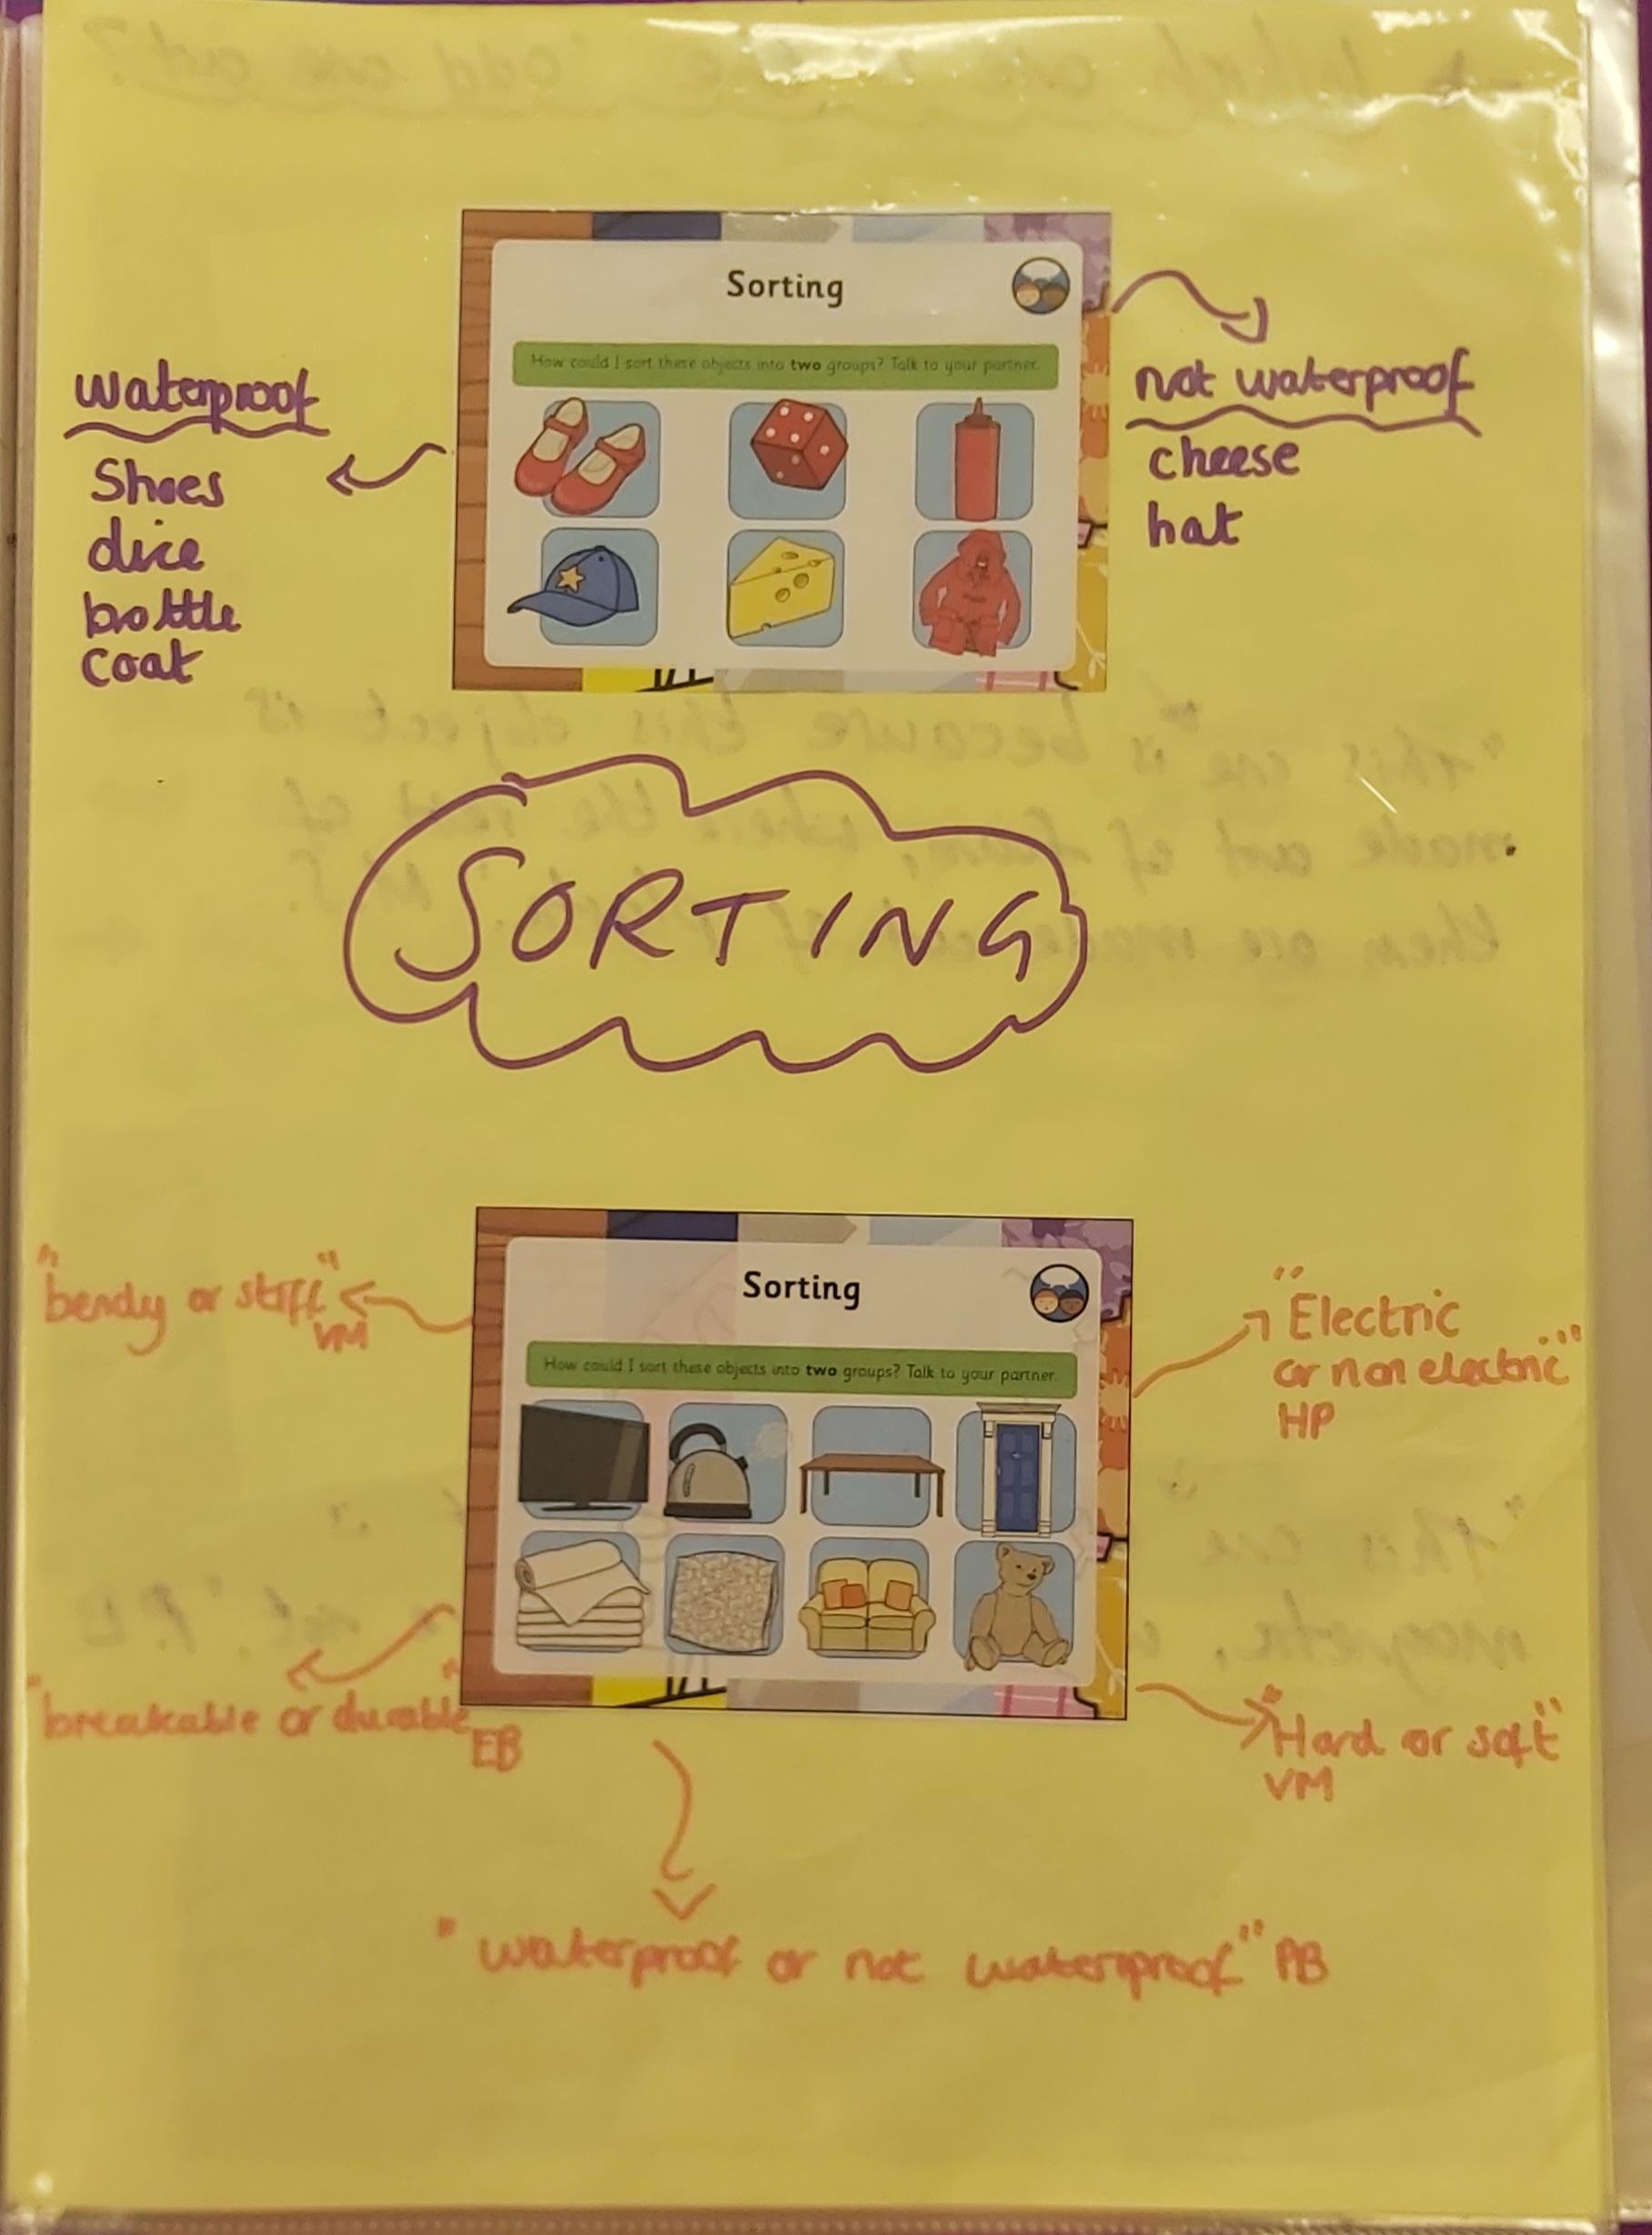 Sorting
How could I sort these objects into two groups? Talk to your partner.
waterproof
Shoes
dice
bottle
coat
not waterproof
cheese
hat
SORTING
Sorting
How could I sort these objects into two groups? Talk to your partner.
"bendy or stiff"
VM
"Electric
or non electric"
HP
"breakable or durable"
EB
"Hard or soft"
VM
"waterproof or not waterproof"